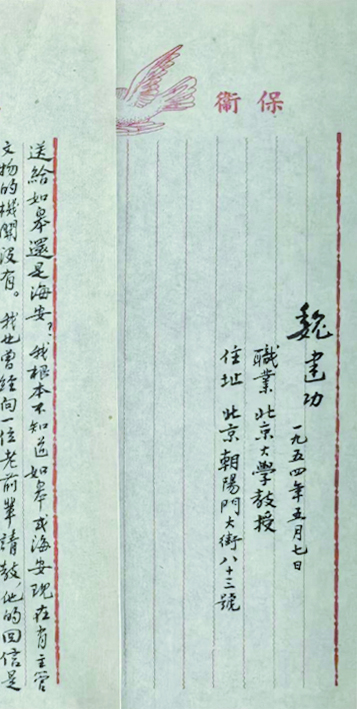 保衞
魏建功 一九五四年五月七日
職業 北京大學教授
住址 北京朝陽門大街八十三號
送給如皋還是海安？我根本不知道如皋或海安現在有主管
文物的機關没有。我也曾經向一位老前輩請教，他的回信是